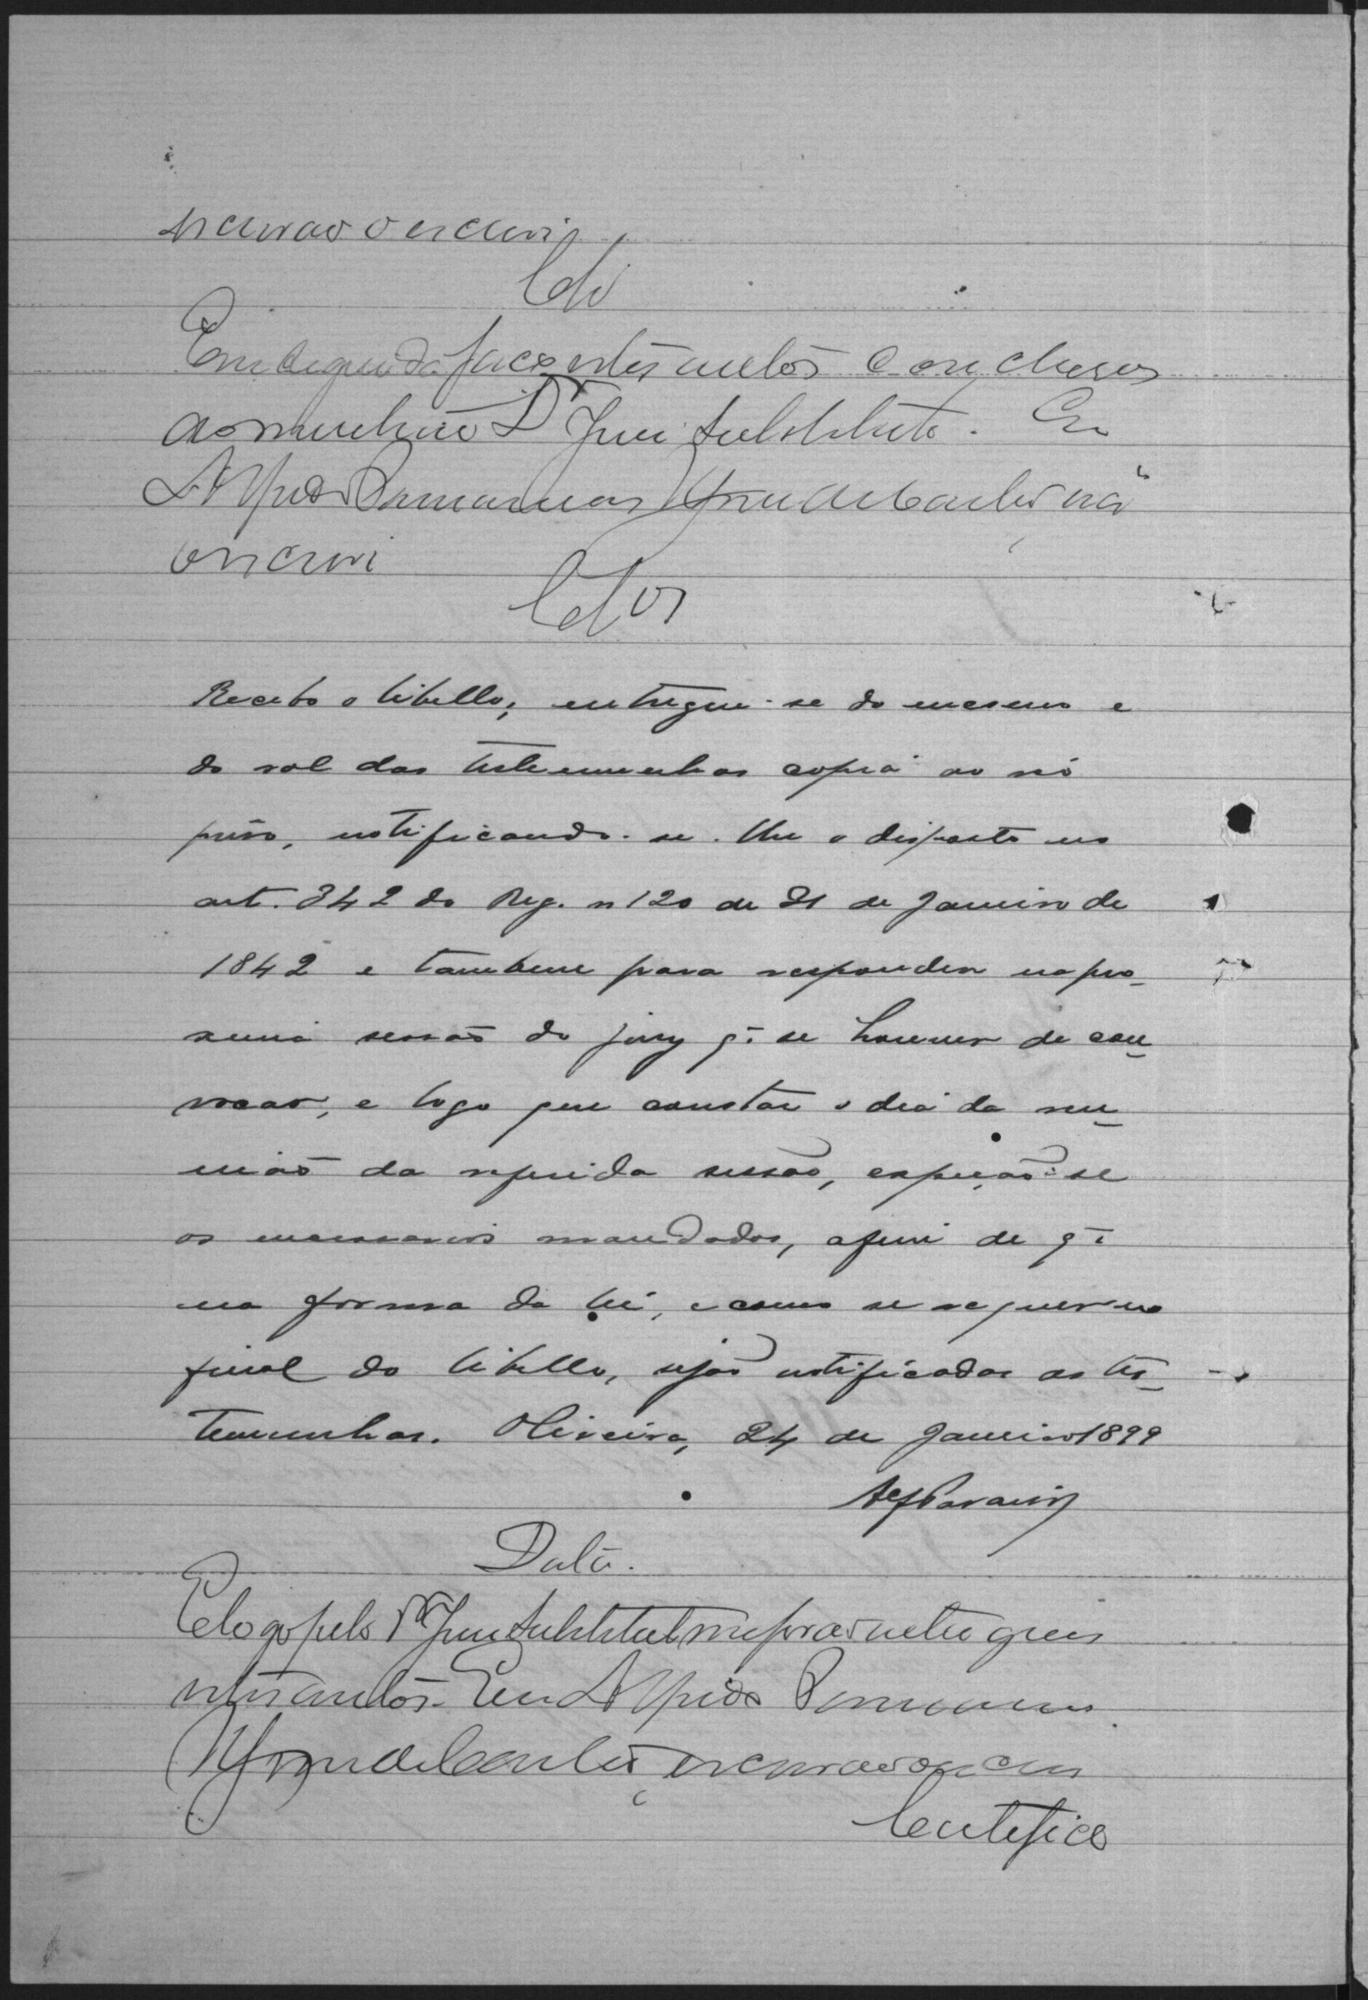 escrivão o escrevi
Clz
Em seguida faço estes autos conclusos
ao meritissimo Dr Juiz Substituto. Eu
Alfredo
escrevi
Clos
Recebo o libello; entregue-se do mesmo e
do rol das testemunhas copia ao réo
prêso, notificando-se-lhe o disposto no
art. 342 do Reg. n 120 de 31 de Janeiro de
1842 e tambem para responder na pro-
xima sessão do jury q̄ se houver de con-
vocar, e logo que constar o dia da reu-
nião da referida sessão, expeção-se
os necessarios mandados, afim de q̄
na forma da lei, e como se requer no
final do libello, sejão notificadas as tes-
temunhas. Oliveira, 24 de Janeiro 1899
Data.
E logo pelo Dr Juiz Substituto me forão entregues
estes autos. Eu Alfredo
escrivão o escrevi
Certifico